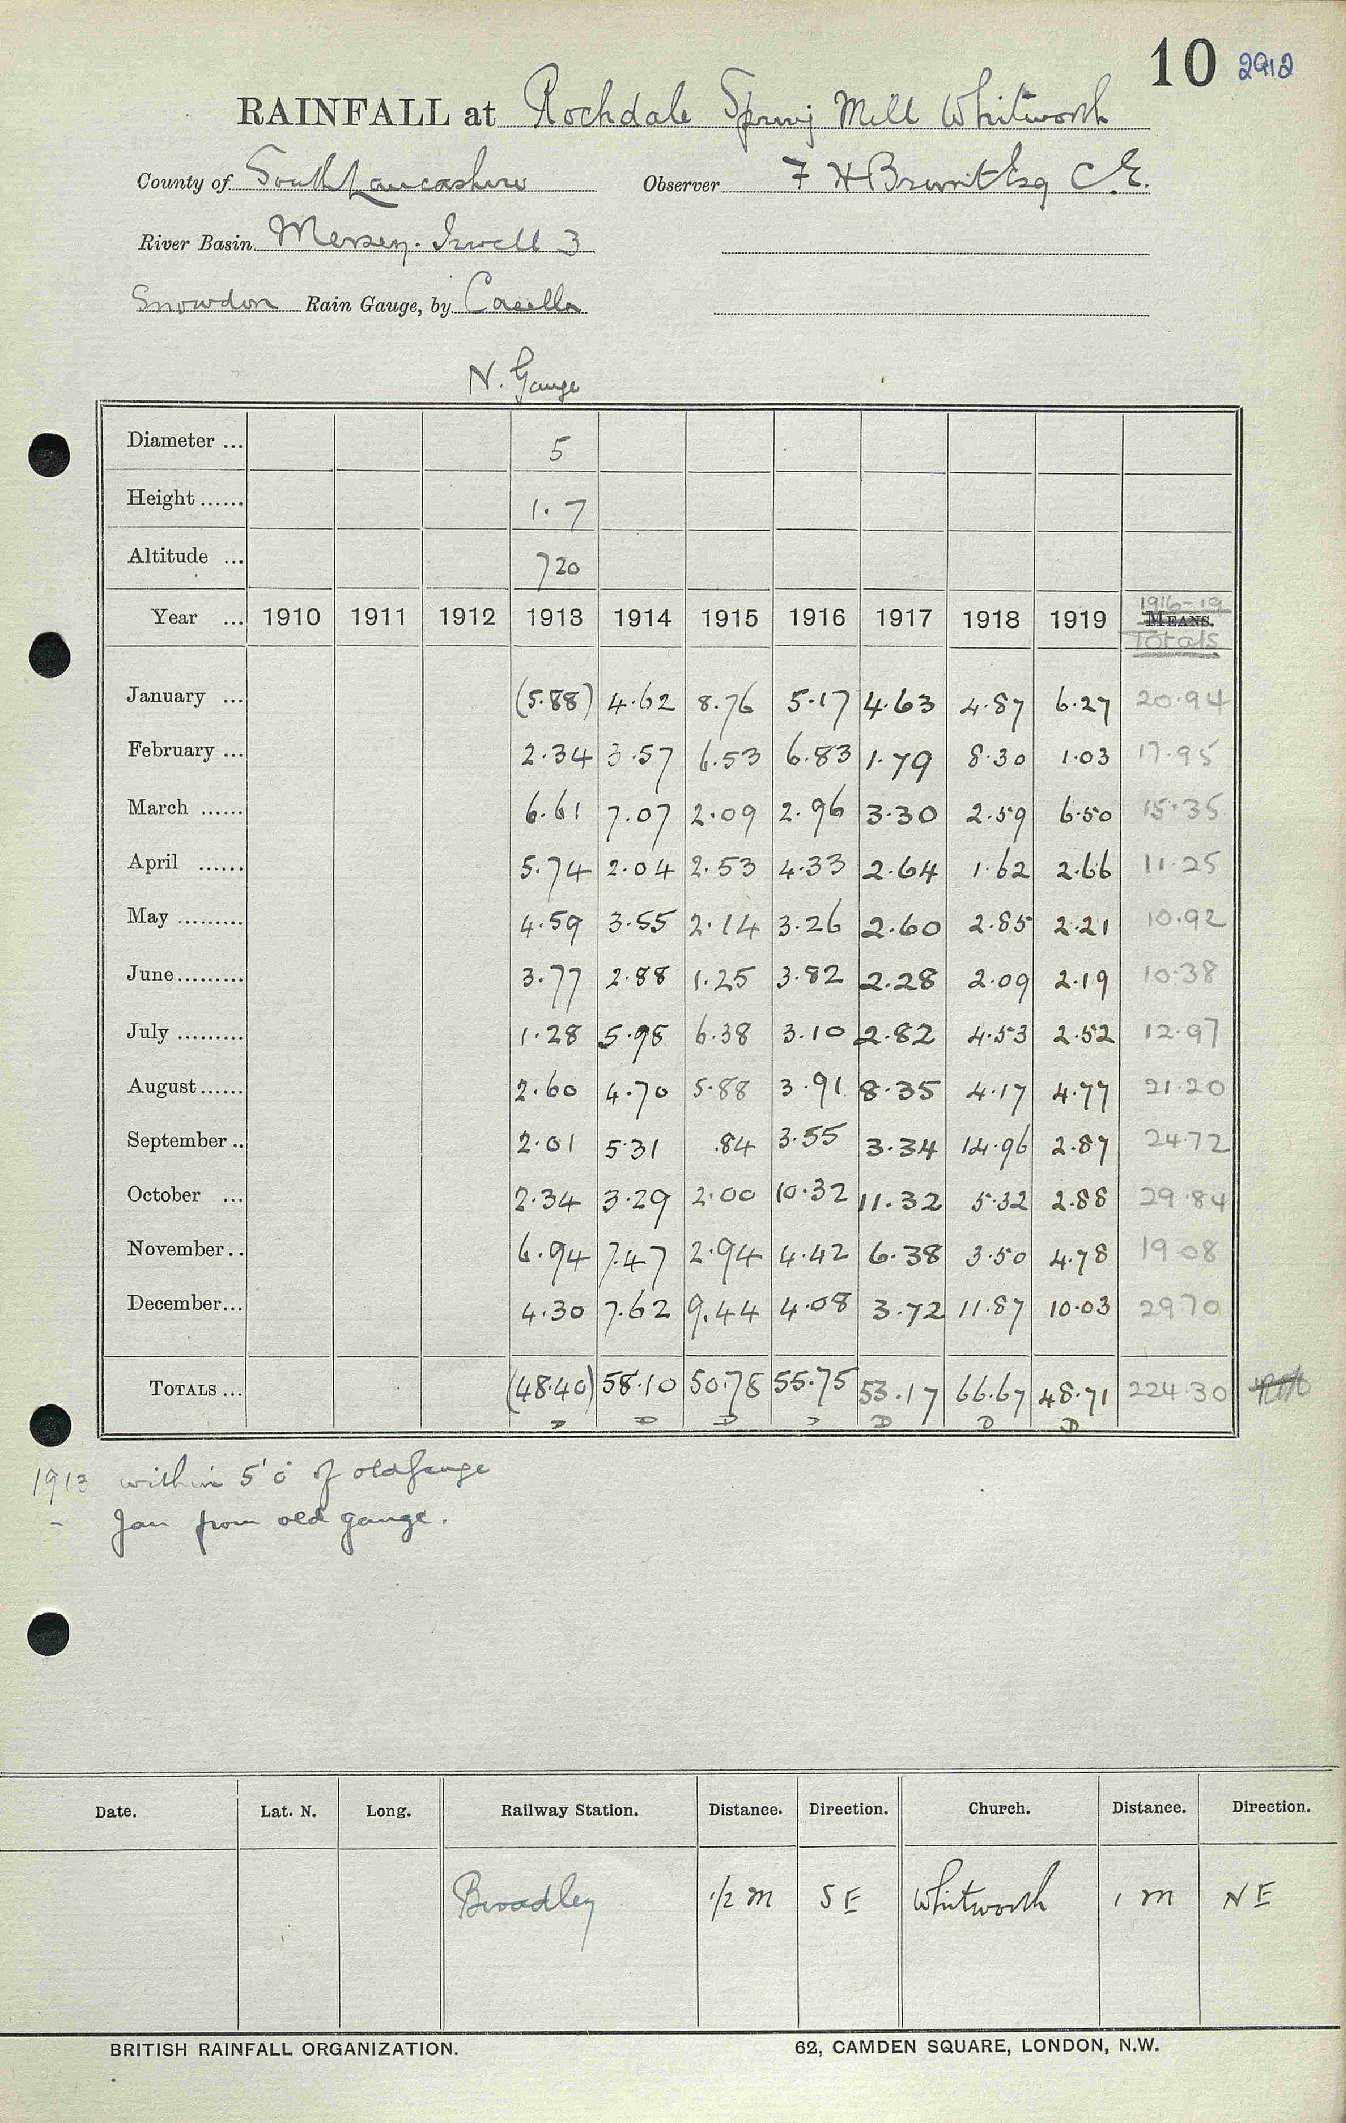 10 2912
RAINFALL at Rochdale Spring Mill Whitworth
County of South Lancashire Observer F H Brunt Esq C.E.
River Basin Mersey. Irwell 3
Snowdon Rain Gauge, by Casella
N. Gauge
Diameter ... 5
Height ...... 1.7
Altitude ... 720
Year ... 1910 1911 1912 1913 1914 1915 1916 1917 1918 1919 1916-19 MEANS. Totals
January ... (5.88) 4.62 8.76 5.17 4.63 4.87 6.27 20.94
February ... 2.34 3.57 6.53 6.83 1.79 8.30 1.03 17.95
March ...... 6.61 7.07 2.09 2.96 3.30 2.59 6.50 15.35
April ...... 5.74 2.04 2.53 4.33 2.64 1.62 2.66 11.25
May ......... 4.59 3.55 2.14 3.26 2.60 2.85 2.21 10.92
June......... 3.77 2.88 1.25 3.82 2.28 2.09 2.19 10.38
July ......... 1.28 5.98 6.38 3.10 2.82 4.53 2.52 12.97
August...... 2.60 4.70 5.88 3.91 8.35 4.17 4.77 21.20
September.. 2.01 5.31 .84 3.55 3.34 14.96 2.87 24.72
October ... 2.34 3.29 2.00 10.32 11.32 5.32 2.88 29.84
November.. 6.94 7.47 2.94 4.42 6.38 3.50 4.78 19.08
December... 4.30 7.62 9.44 4.08 3.72 11.87 10.03 29.70
TOTALS ... (48.40) 58.10 50.78 55.75 53.17 66.67 48.71 224.30
D D D D D D D
1913 within 5'0" of old gauge
- Jan from old gauge.
Date. Lat. N. Long. Railway Station. Distance. Direction. Church. Distance. Direction.
Broadley 1/2 m S E Whitworth 1 m N E
BRITISH RAINFALL ORGANIZATION. 62, CAMDEN SQUARE, LONDON, N.W.